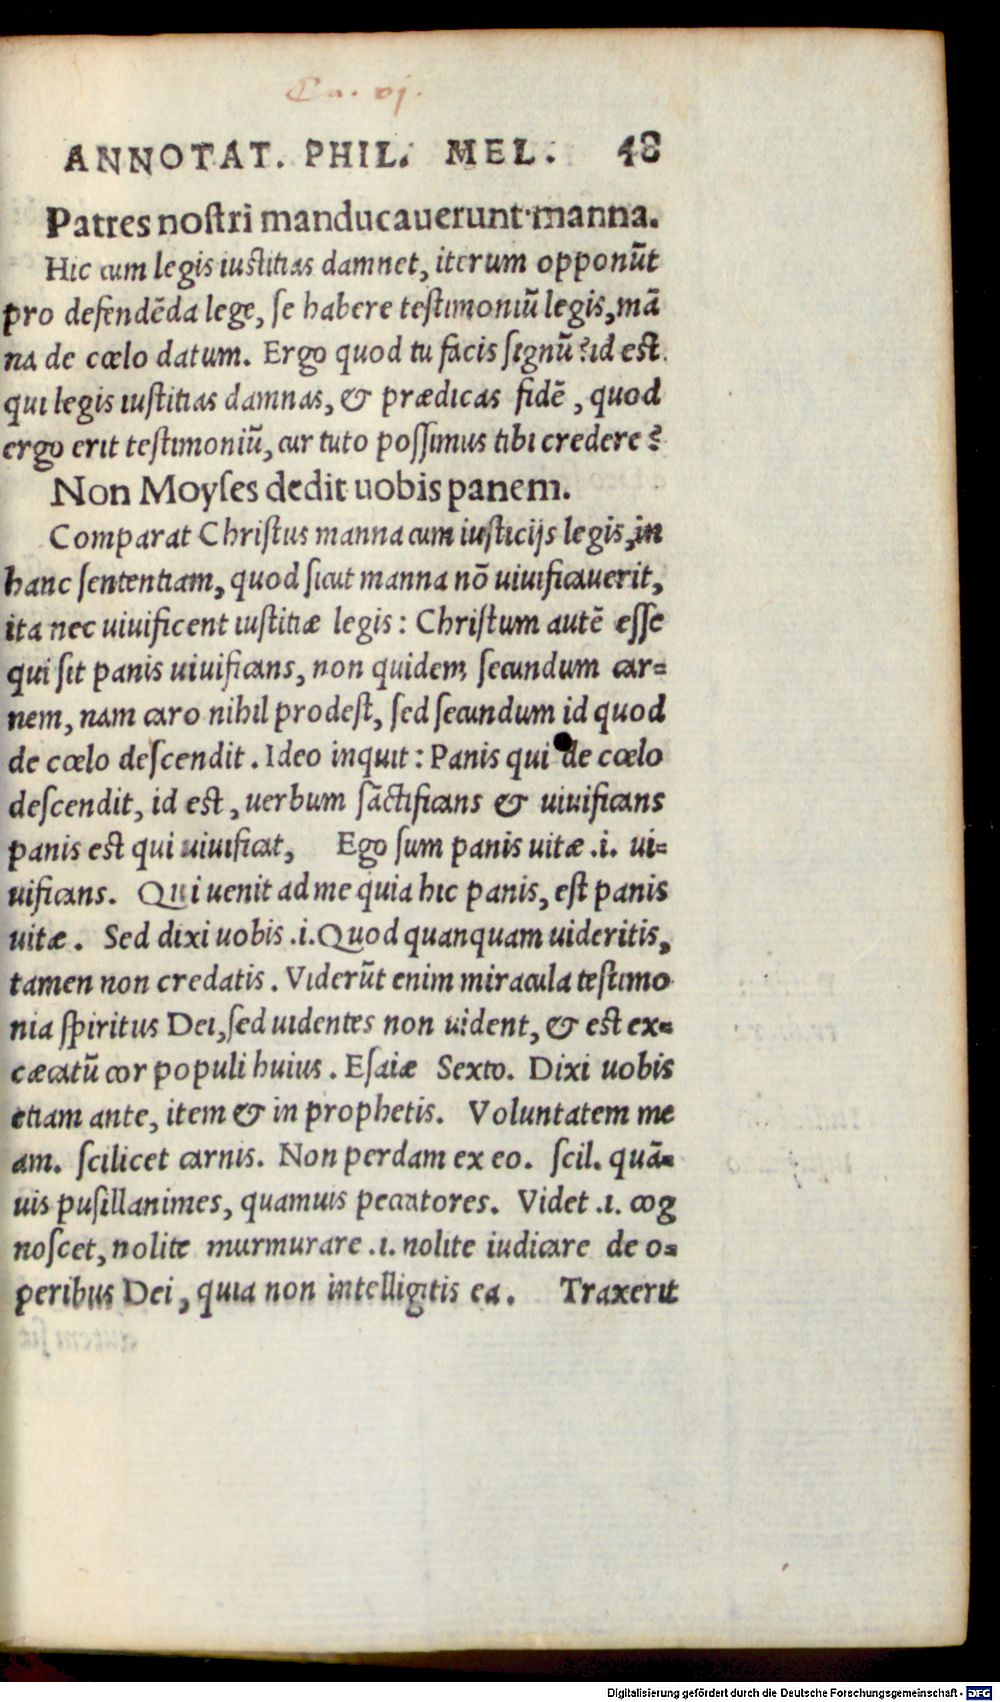 Ca. vj.
ANNOTAT. PHIL. MEL. 48
Patres noſtri manducauerunt manna.
Hic cum legis iuſtitias damnet, iterum opponūt
pro defendēda lege, ſe habere teſtimoniū legis, mā
na de cœlo datum. Ergo quod tu facis ſignū? id eſt.
qui legis iuſtitias damnas, & prædicas fidē, quod
ergo erit teſtimoniū, cur tuto poſſimus tibi credere?
Non Moyſes dedit uobis panem.
Comparat Chriſtus manna cum iuſticijs legis, in
hanc ſententiam, quod ſicut manna nō uiuificauerit,
ita nec uiuificent iuſtitiæ legis: Chriſtum autē eſſe
qui ſit panis uiuificans, non quidem ſecundum car=
nem, nam caro nihil prodeſt, ſed ſecundum id quod
de cœlo deſcendit. Ideo inquit: Panis qui de cœlo
deſcendit, id eſt, uerbum ſāctificans & uiuificans
panis eſt qui uiuificat, Ego ſum panis uitæ .i. ui=
uificans. Qui uenit ad me quia hic panis, eſt panis
uitæ. Sed dixi uobis .i. Quod quanquam uideritis,
tamen non credatis. Viderūt enim miracula teſtimo
nia ſpiritus Dei, ſed uidentes non uident, & eſt ex=
cæcatū cor populi huius. Eſaiæ Sexto. Dixi uobis
etiam ante, item & in prophetis. Voluntatem me
am. ſcilicet carnis. Non perdam ex eo. ſcil. quā=
uis puſillanimes, quamuis peccatores. Videt .i. cog
noſcet, nolite murmurare .i. nolite iudicare de o=
peribus Dei, quia non intelligitis ea. Traxerit
Digitalisierung gefördert durch die Deutsche Forschungsgemeinschaft - DFG